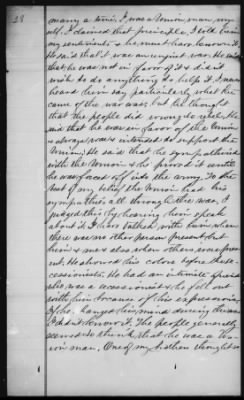 28
many a time. I was a Union man my
self. I claimed that principle. I told him
my sentiments & he must have known it.
He said that it was an unjust war. He said
that he was not in favor of it & did not
wish to do anything to help it. I never
heard him say particularly what the
cause of the war was, but he thought
that the people did wrong to rebel. He
said that he was in favor of the Union
& always was & intended to support the
Union. He said that he sympathized
with the Union & he proved it until
he was forced off into the army. To the
best of my belief the Union had his
sympathies all through the war. I
judged this by hearing him speak
about it. I have talked with him when
there was no other person present but
him & me & also when others were pres
ent. He showed his colors before these
secessionists. He had an intimate friend
who was a secessionist & he fell out
with him because of his expressions.
If he changed his mind during the war
I didn't know it. The people generally
seemed to think that he was a Un-
ion man. One of my brothers thought so